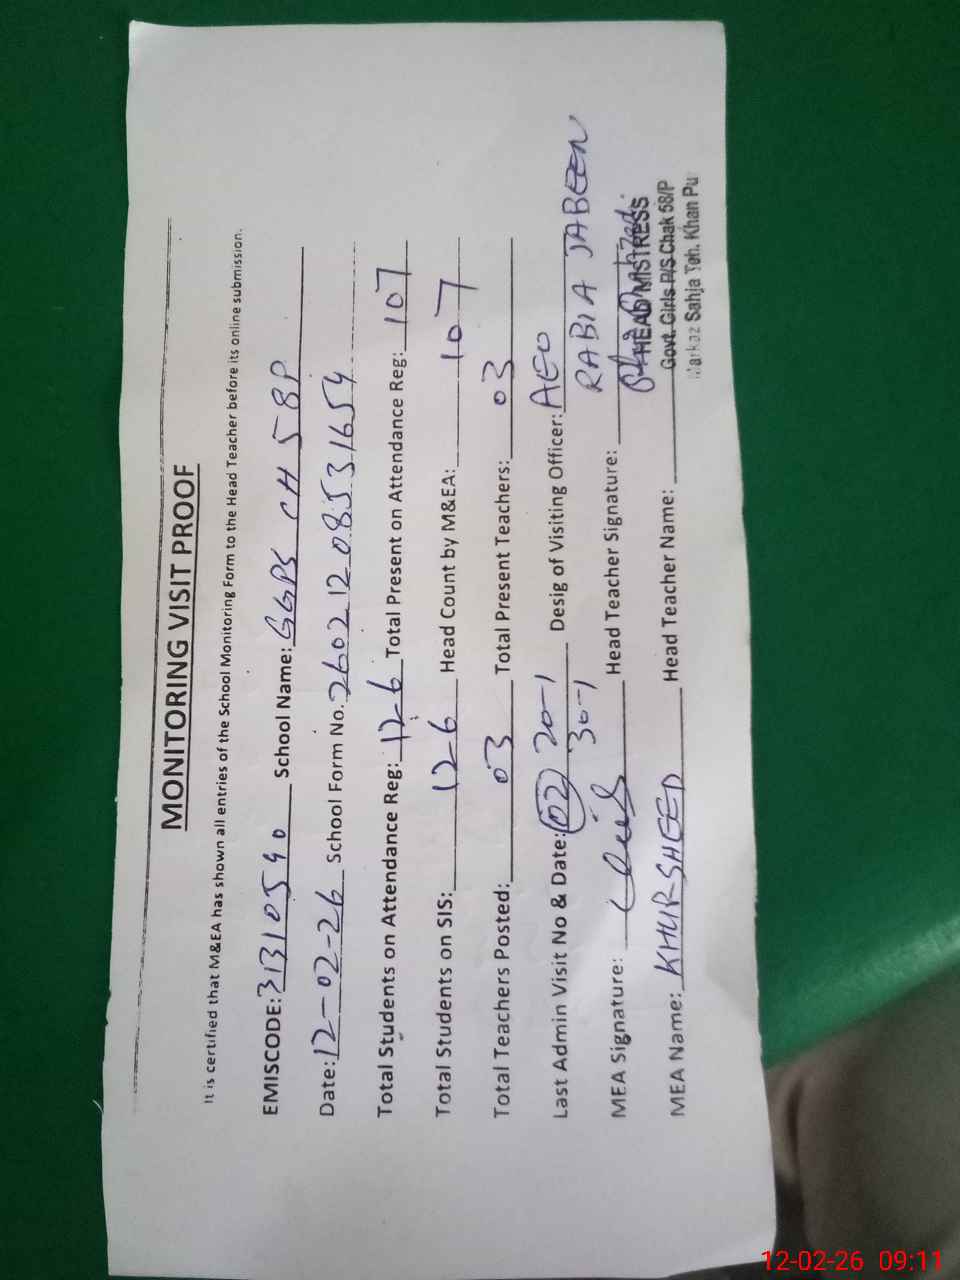 MONITORING VISIT PROOF
It is certified that M&EA has shown all entries of the School Monitoring Form to the Head Teacher before its online submission.
EMISCODE: 31310590 School Name: GGPS CH 58P
Date: 12-02-26 School Form No. 26021208531654
Total Students on Attendance Reg: 126 Total Present on Attendance Reg: 107
Total Students on SIS: 126 Head Count by M&EA: 107
Total Teachers Posted: 03 Total Present Teachers: 03
Last Admin Visit No & Date: 02 20-1 Desig of Visiting Officer: AEO
30-1 RABIA JABEEN
MEA Signature: Head Teacher Signature:
HEAD MISTRESS
MEA Name: KHURSHEED Head Teacher Name: Govt. Girls P/S Chak 58/P
Markaz Sahja Teh. Khan Pu
12-02-26 09:11